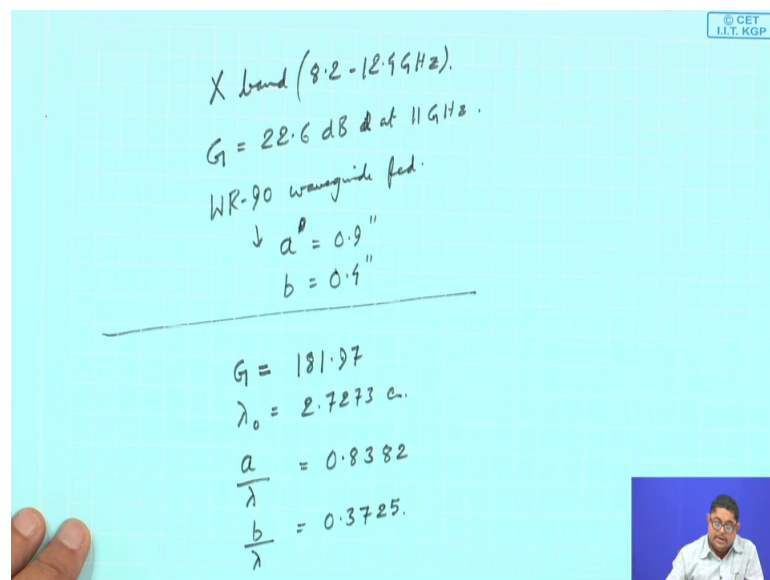 © CET
I.I.T. KGP
X band (8.2-12.4GHz).
G = 22.6 dB at 11 GHz.
WR-90 waveguide fed.
↓ a = 0.9"
b = 0.4"
G = 181.97
λ₀ = 2.7273 c.
a/λ = 0.8382
b/λ = 0.3725.